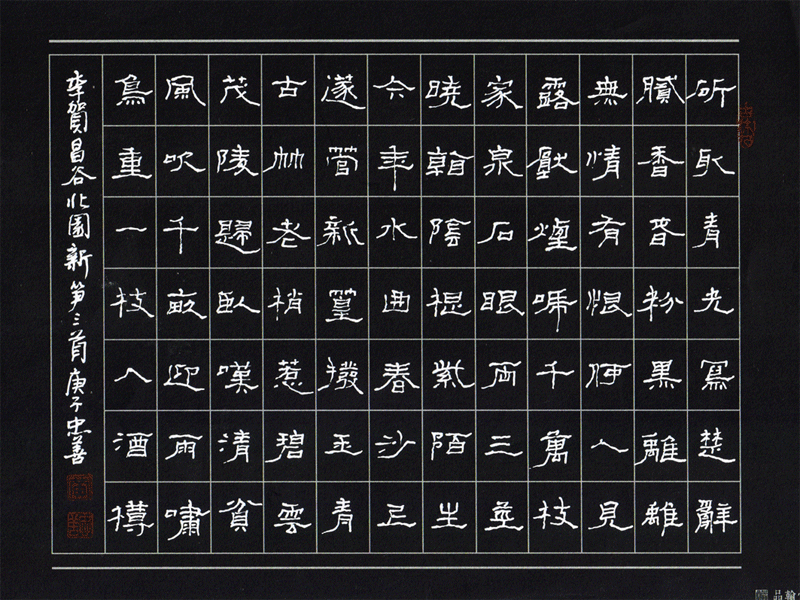 斫取青光寫楚辭
膩香春粉黑離離
無情有恨何人見
露猒煙啼千萬枝
家泉石眼兩三莖
曉看陰根紫陌生
今年水曲春沙上
篴管新篁撥玉青
古竹老梢惹碧雲
茂陵歸臥嘆清貧
風吹千畝迎雨嘯
鳥重一枝入酒樽
李賀昌谷北園新笋三首庚子忠善